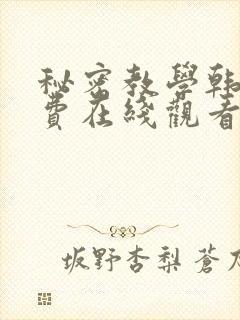 秘密教學韩
費在綫觀看
坂野杏梨 蒼